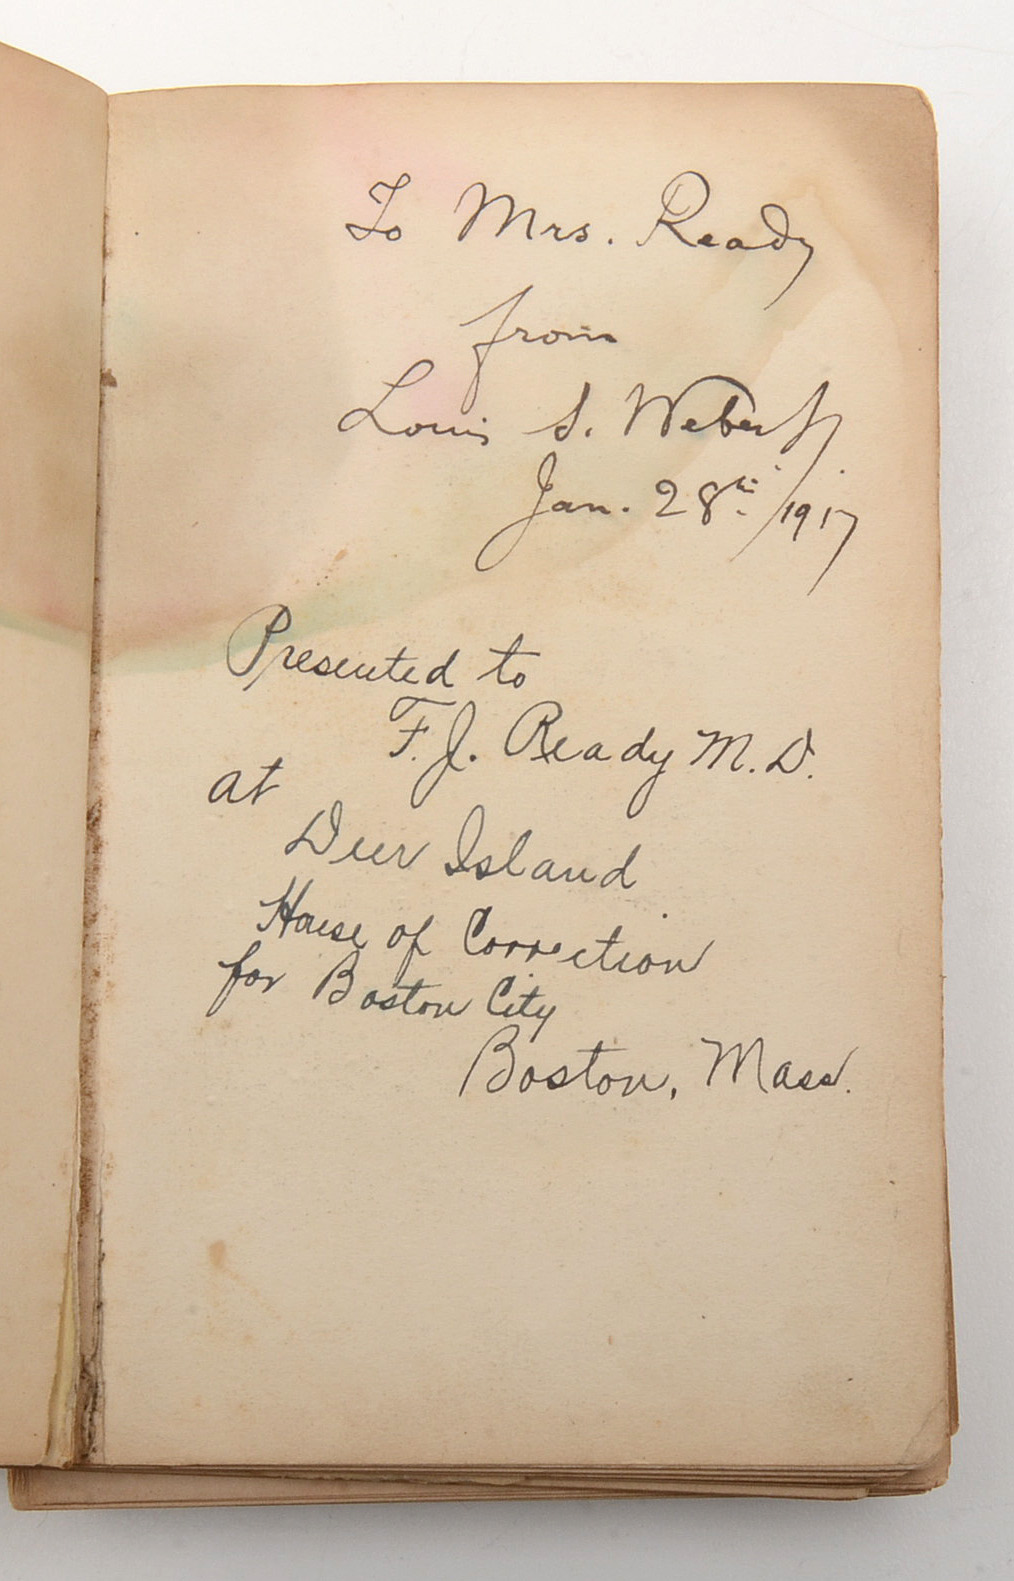 To Mrs. Ready
from
Louis S.
Jan. 28th /1917
Presented to
F. J. Ready M. D.
at
Deer Island
House of Correction
for Boston City
Boston, Mass.